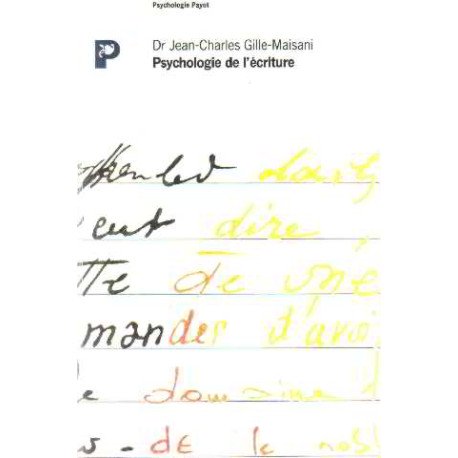 Psychologie Payot
P
Dr Jean-Charles Gille-Maisani
Psychologie de l'écriture
eut dire,
tte de une
mandes d'avoi
e domaine
s - de le nob